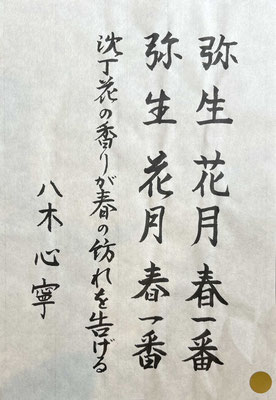 弥生 花月 春一番
弥生 花月 春一番
沈丁花の香りが春の訪れを告げる
八木心寧